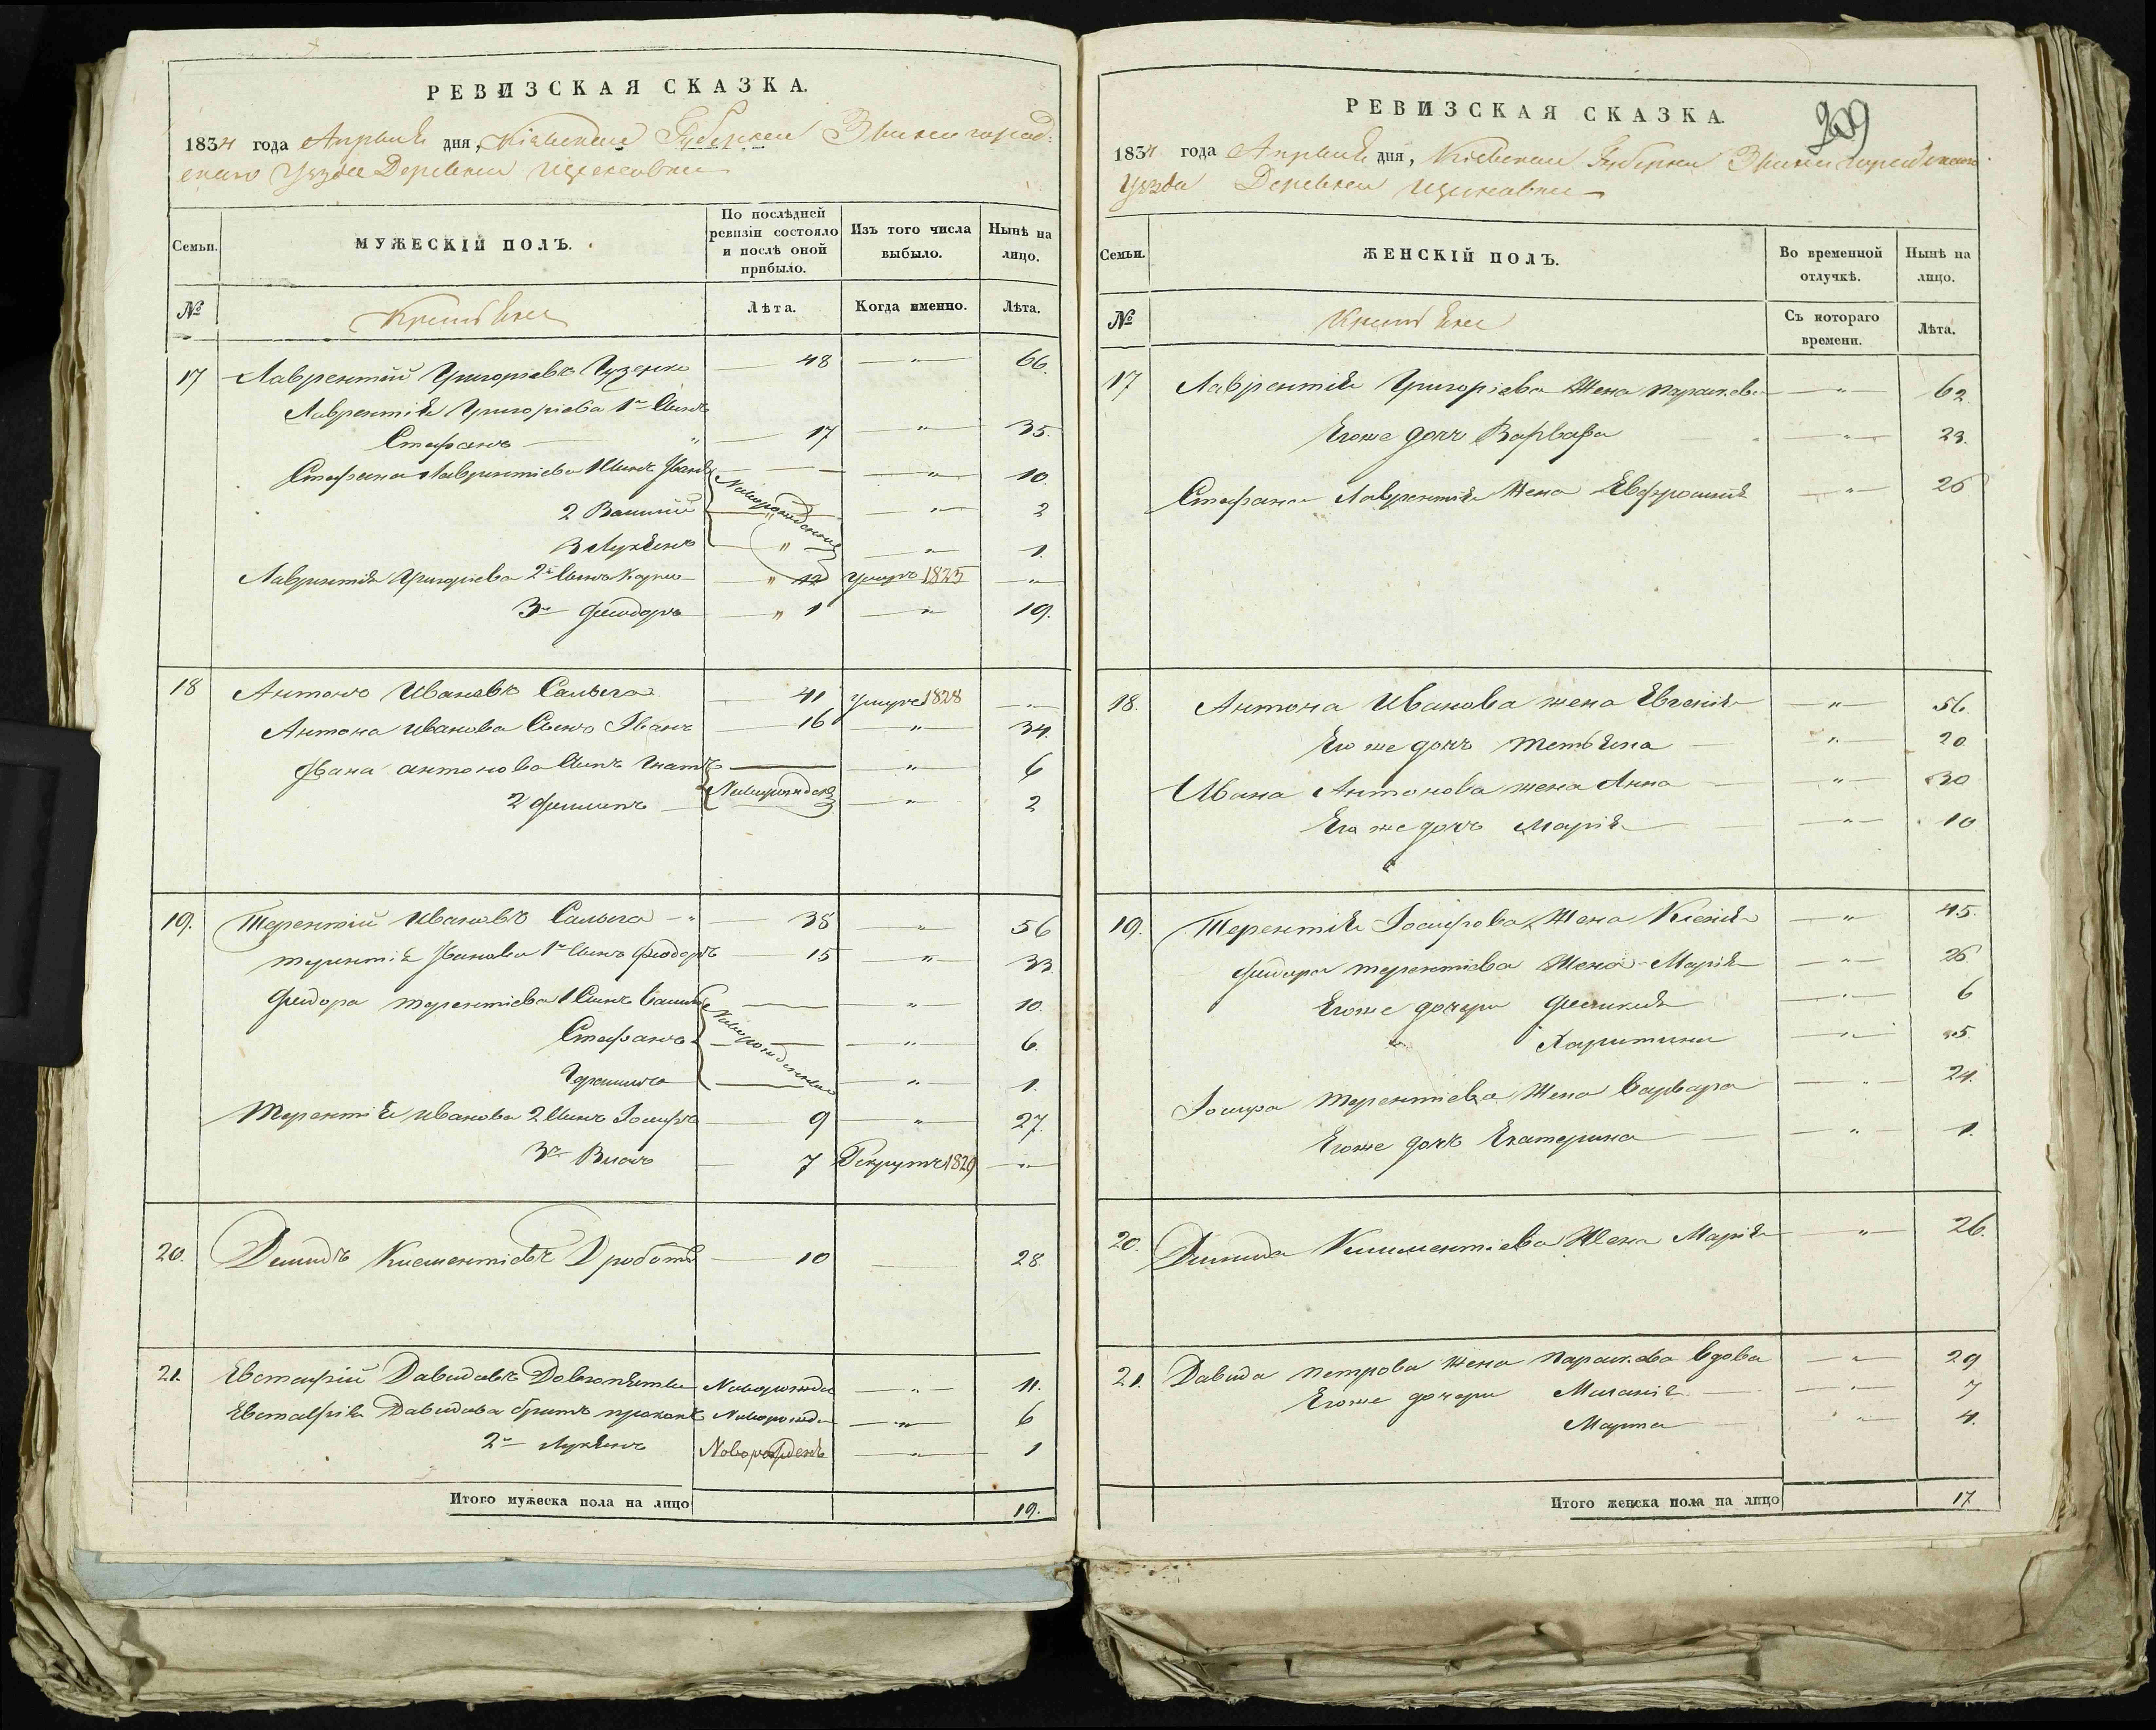 РЕВИЗСКАЯ СКАЗКА.
1834 года Апрѣля дня, Кіевской Губерніи Звинигород-
скаго Уѣзда Деревни
Семьи.
МУЖЕСКІЙ ПОЛЪ.
По послѣдней ревизіи состояло и послѣ оной прибыло.
Изъ того числа выбыло.
Нынѣ на лицо.
№
Лѣта.
Когда именно.
Лѣта.
17 Лаврентій Григорьевъ Гузенко 48 " 66.
Лаврентія Григоріева 1й Сынъ
Стефанъ " 17 " 35.
Стефана Лаврентіева 1 Сынъ Иванъ " 10.
2 Василій " " 2
3 Лукіянъ " " 1.
Новорожденные
Лаврентія Григоріева 2й Сынъ Карпо " 12 Умеръ 1825 "
3й Феодоръ " 1 " 19.
18 Антонъ Ивановъ Сальега 41 Умеръ 1828 "
Антона Иванова Сынъ Иванъ 16 " 34.
Ивана Антонова Сынъ Игнатъ " 6
2 Филипъ " 2
Новорожден
19. Терентій Ивановъ Сальега " 38 " 56
Терентія Иванова 1й Сынъ Феодоръ 15 " 33
Феодора Терентіева 1 Сынъ Василь " 10.
Стефанъ " 6.
" 1.
Новорожденные
Терентія Иванова 2 Сынъ Іосифъ 9 " 27.
3й Власъ 7 Рекрутъ 1829 "
20. Демидъ Клементіевъ Дроботъ 10 28.
21. Евстафій Давидовъ Новорожде " 11.
Евстафія Давидова братъ Прокопъ Новорожде " 6
2й Лукіянъ Новорожденъ " 1
Итого мужеска пола на лицо 19.
РЕВИЗСКАЯ СКАЗКА.
209
1834 года Апрѣля дня, Кіевской Губерніи Звинигородскаго
Уѣзда Деревни
Семьи.
ЖЕНСКІЙ ПОЛЪ.
Во временной отлучкѣ.
Нынѣ на лицо.
№
Съ котораго времени.
Лѣта.
17 Лаврентія Григоріева Жена Параскева " 62
Егоже дочь Варвара " 23.
Стефана Лаврентія Жена Евфросинія " 26
18. Антона Иванова жена Евгенія " 56.
Его же дочь Тетьяна " 20
Ивана Антонова жена Анна " 30
Его же дочь Марія " 10
19. Терентія Іосифова Жена Ксенія " 45.
Феодора Терентіева Жена Марія " 26
Егоже дочери " 6
Харитина " 5.
Іосифа Терентіева Жена Варвара " 24.
Егоже дочь Екатерина " 1.
20. Демида Клементіева Жена Марія " 26.
21. Давида Петрова жена Параскева вдова " 29
Егоже дочери Миланія " 7
Марта " 4.
Итого женска пола на лицо 17